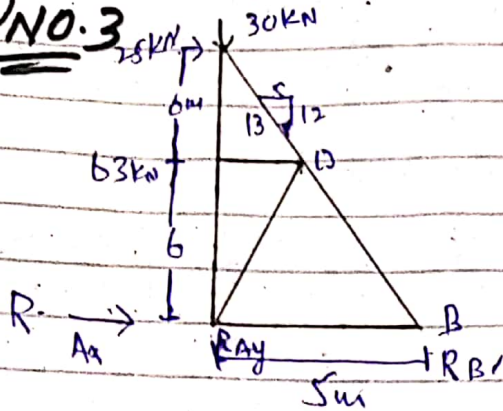 NO.3
30KN
25KN
6m
5
13 12
D
63KN
6
R.
Ax
RAy
B
RB
5m